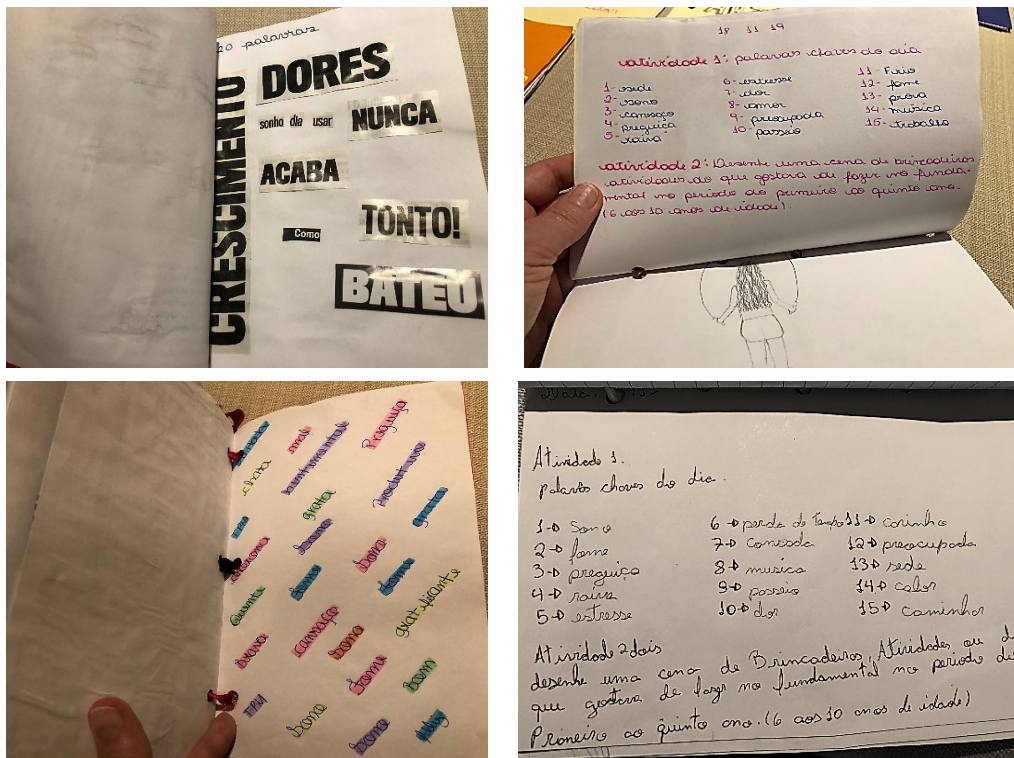 20 palavras
CRESCIMENTO
DORES
sonho dia usar
NUNCA
ACABA
TONTO!
Como
BATEU
18 11 19
atividade 1: palavras chaves do dia
1- sede
2- sono
3- cansaço
4- preguiça
5- raiva
6- estresse
7- dor
8- amor
9- preocupada
10- passeio
11- Frio
12- fome
13- prova
14- musica
15- trabalho
atividade 2: Desenhe uma cena de brincadeiras
atividades do que gostava de fazer no funda-
mental no período do primeiro ao quinto ano.
(6 aos 10 anos de idade).
chata
mal
Preguiça
sentimental
Produtiva
grata
grata
TPM
sono
sono
fome
fome
gratificante
brava
cansaço
sono
fome
bom
TPM
sono
sono
Atividade 1.
palavras chaves do dia.
1-> Sono
2-> fome
3-> preguiça
4-> raiva
5-> estresse
6-> perda de tempo
7-> cansada
8-> musica
9-> passeio
10-> dor
11-> carinho
12-> preocupada
13-> sede
14-> calor
15-> caminhar
Atividade 2 dois
desenhe uma cena de Brincadeiras, Atividades ou d
que gostava de fazer no fundamental no periodo do
Primeiro ao quinto ano. (6 aos 10 anos de idade)